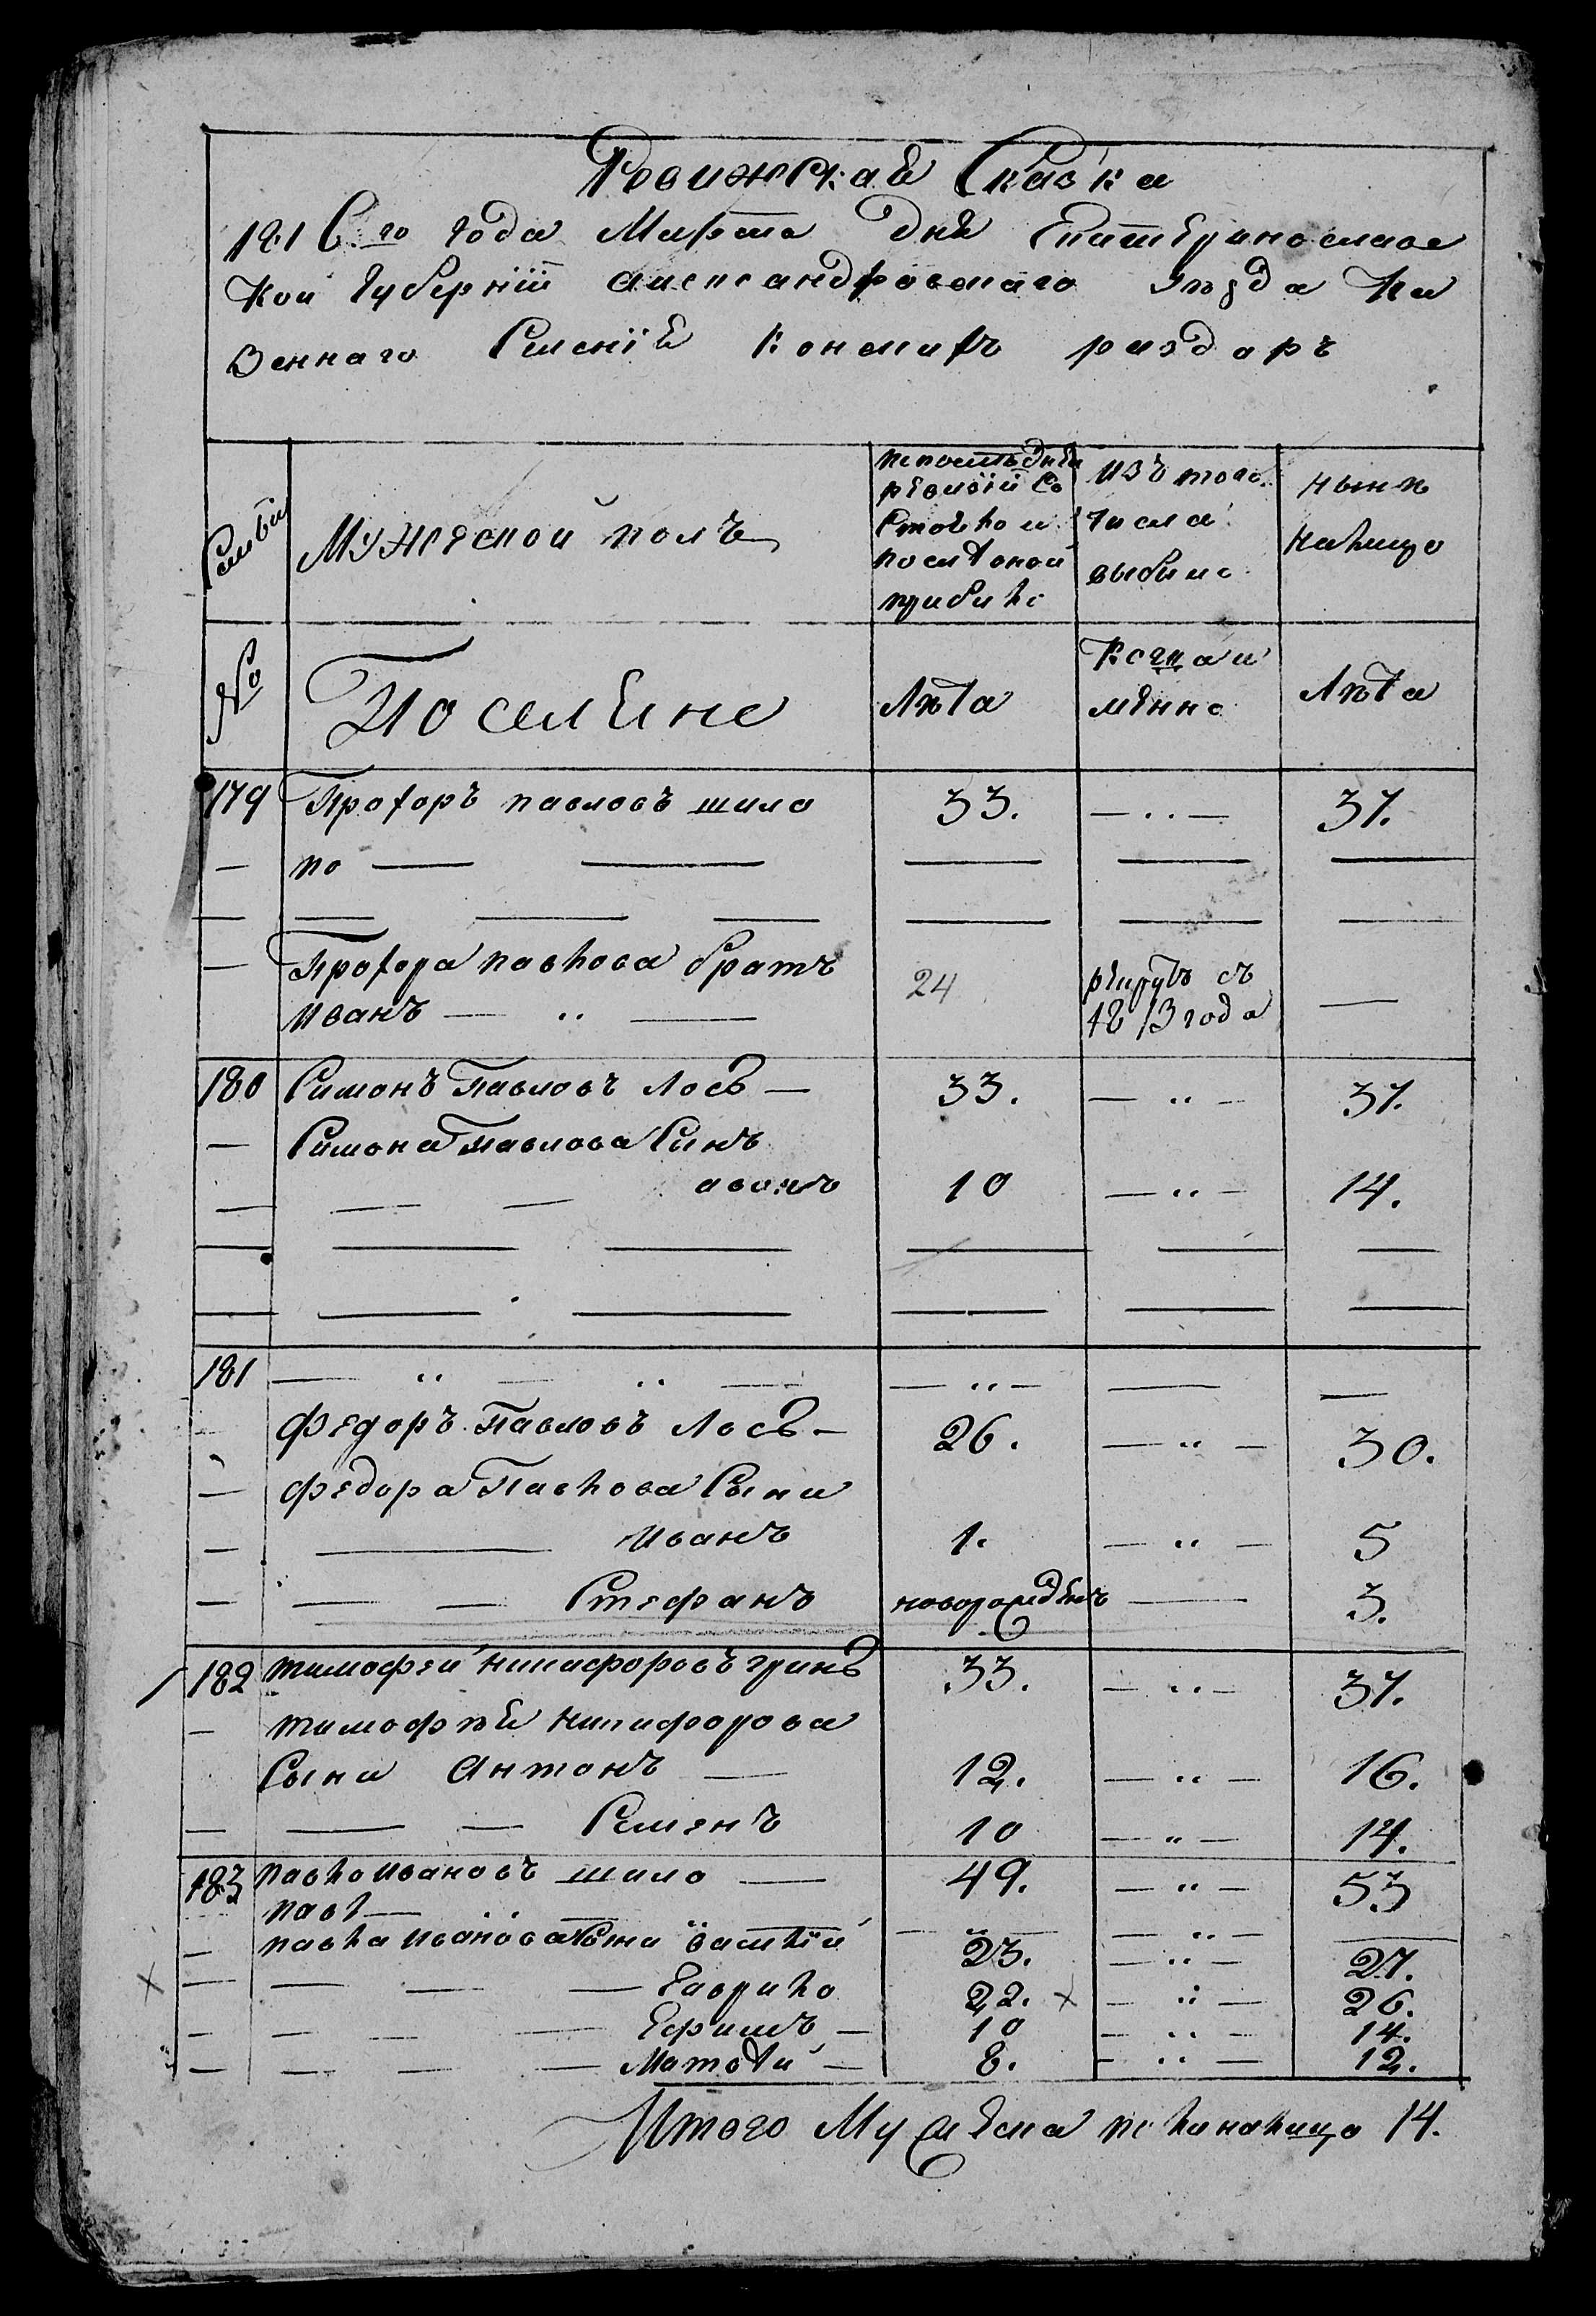 Ревижская Сказка
1816.го года Марта дня Екатеринославс
кой губернiи александровскаго уезда Ка
зеннаго Селенiя Конскихъ раздоръ
Семьи
Мужеской полъ
по последней
ревизiи Со
Стояло и
после оной
прибыло
изъ того
числа
выбыло
ныне
налицо
№
Поселяне
Лета
Когда и
мянно
Лета
179 Прохоръ павловъ шило 33. — .. — 37.
— по — —
— Прохора павлова братъ
иванъ — .. — 24 рекрутъ съ 1813 года —
180 Симонъ Павловъ Лось — 33. — .. — 37.
— Симона Павлова Синъ
— — — иванъ 10 — .. — 14.
181 — .. — .. — — .. — — —
федоръ Павловъ Лось — 26. — .. — 30.
— федора Павлова Сыни
— — иванъ 1. — .. — 5
— — — Стефанъ новорожденъ — 3.
182 тимофей никифоровъ гринь 33. — .. — 37.
— тимофея никифорова
Сыни Антонъ — 12. — .. — 16.
— — — Семенъ 10 — .. — 14.
183 павло ивановъ шило — 49. — .. — 53
павл — .. — — — .. — —
— павла иванова Сыни василiй 23. — .. — 27.
— — — — Гаврило 22. x — .. — 26.
— — — — Ефимъ — 10 — .. — 14.
— — — — Матвей — 8. — .. — 12.
Итого Мужеска пола налицо 14.